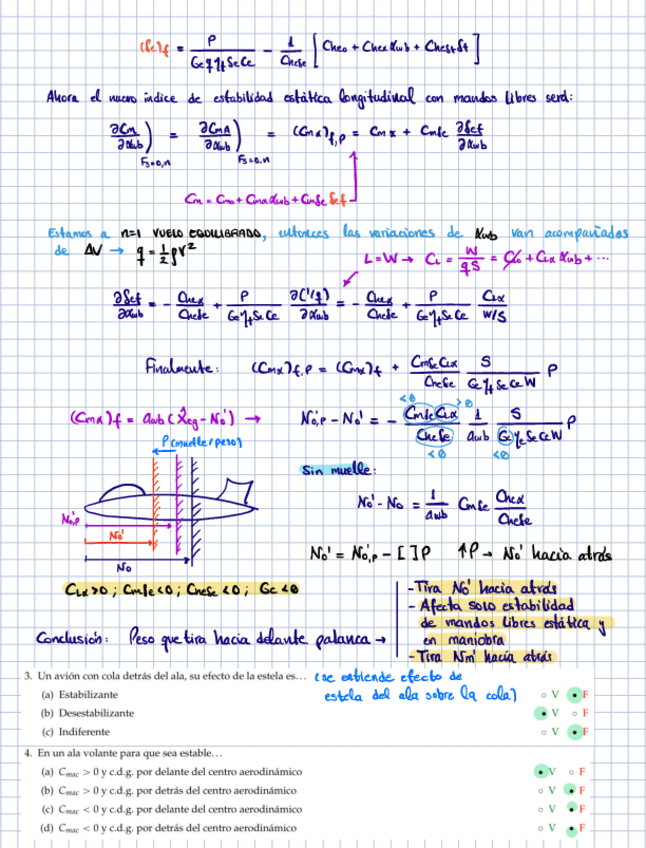 (δe)f = P / (Ge q ηt Se Ce) − 1/Chδe [Cheo + Cheα αwb + Cheδt δt]
Ahora el nuevo índice de estabilidad estática longitudinal con mandos libres será:
∂Cm/∂αwb)Fs=0,n = ∂CmA/∂αwb)Fs=0,n = (Cmα)f,P = Cmα + Cmδe ∂δef/∂αwb
Cm = Cmo + Cmα αwb + Cmδe δef
Estamos a n=1 VUELO EQUILIBRADO, entonces las variaciones de αwb van acompañadas
de ΔV → q = ½ρV²
L=W → CL = W/qS = CLo + CLα αwb + ...
∂δef/∂αwb = − Cheα/Cheδe + P/(Ge ηt Se Ce) ∂(1/q)/∂αwb = − Cheα/Cheδe + P/(Ge ηt Se Ce) CLα/(W/S)
Finalmente: (Cmα)f,P = (Cmα)f + (Cmδe CLα / Cheδe) S/(Ge ηt Se Ce W) P
(Cmα)f = awb (X̂cg − No') → No',p − No' = − (Cmδe CLα / Cheδe) 1/awb S/(Ge ηt Se Ce W) P
<0 >0
<0 <0
P (muelle/peso)
Sin muelle:
No' − No = 1/awb Cmδe Cheα/Cheδe
No',p
No'
No
No' = No',p − [ ]P ↑P → No' hacia atrás
CLα>0 ; Cmδe<0 ; Cheδe<0 ; Ge<0
Conclusión: Peso que tira hacia delante palanca →
- Tira No' hacia atrás
- Afecta solo estabilidad
de mandos libres estática y
en maniobra
- Tira Nm' hacia atrás
3. Un avión con cola detrás del ala, su efecto de la estela es... (se entiende efecto de
estela del ala sobre la cola)
(a) Estabilizante V F
(b) Desestabilizante V F
(c) Indiferente V F
4. En un ala volante para que sea estable...
(a) Cmac > 0 y c.d.g. por delante del centro aerodinámico V F
(b) Cmac > 0 y c.d.g. por detrás del centro aerodinámico V F
(c) Cmac < 0 y c.d.g. por delante del centro aerodinámico V F
(d) Cmac < 0 y c.d.g. por detrás del centro aerodinámico V F